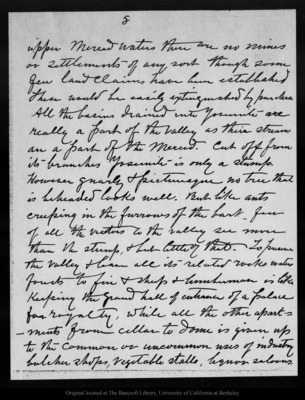 8
upper Merced waters there are no mines
or settlements of any sort though some
few land claims have been established
These would be easily extinguished by purchase
All the basins drained into Yosemite are
really a part of the Valley as their streams
are a part of the Merced. Cut off from
its branches Yosemite is only a stump.
However gnarly & picturesque no tree that
is beheaded looks well. But like ants
creeping in the furrows of the bark few
of all the visitors to the valley see more
than the stump, & but little of that. To preserve
the Valley & leave all its related rocks waters
forests to fire & sheep & lumberman is like
keeping the grand hall of entrance of a palace
for royalty, while all the other apart-
-ments from cellar to dome is given up
to the common or uncommon uses of industry
butcher shops, vegetable stalls, liquor saloons
Original located at The Bancroft Library, University of California at Berkeley